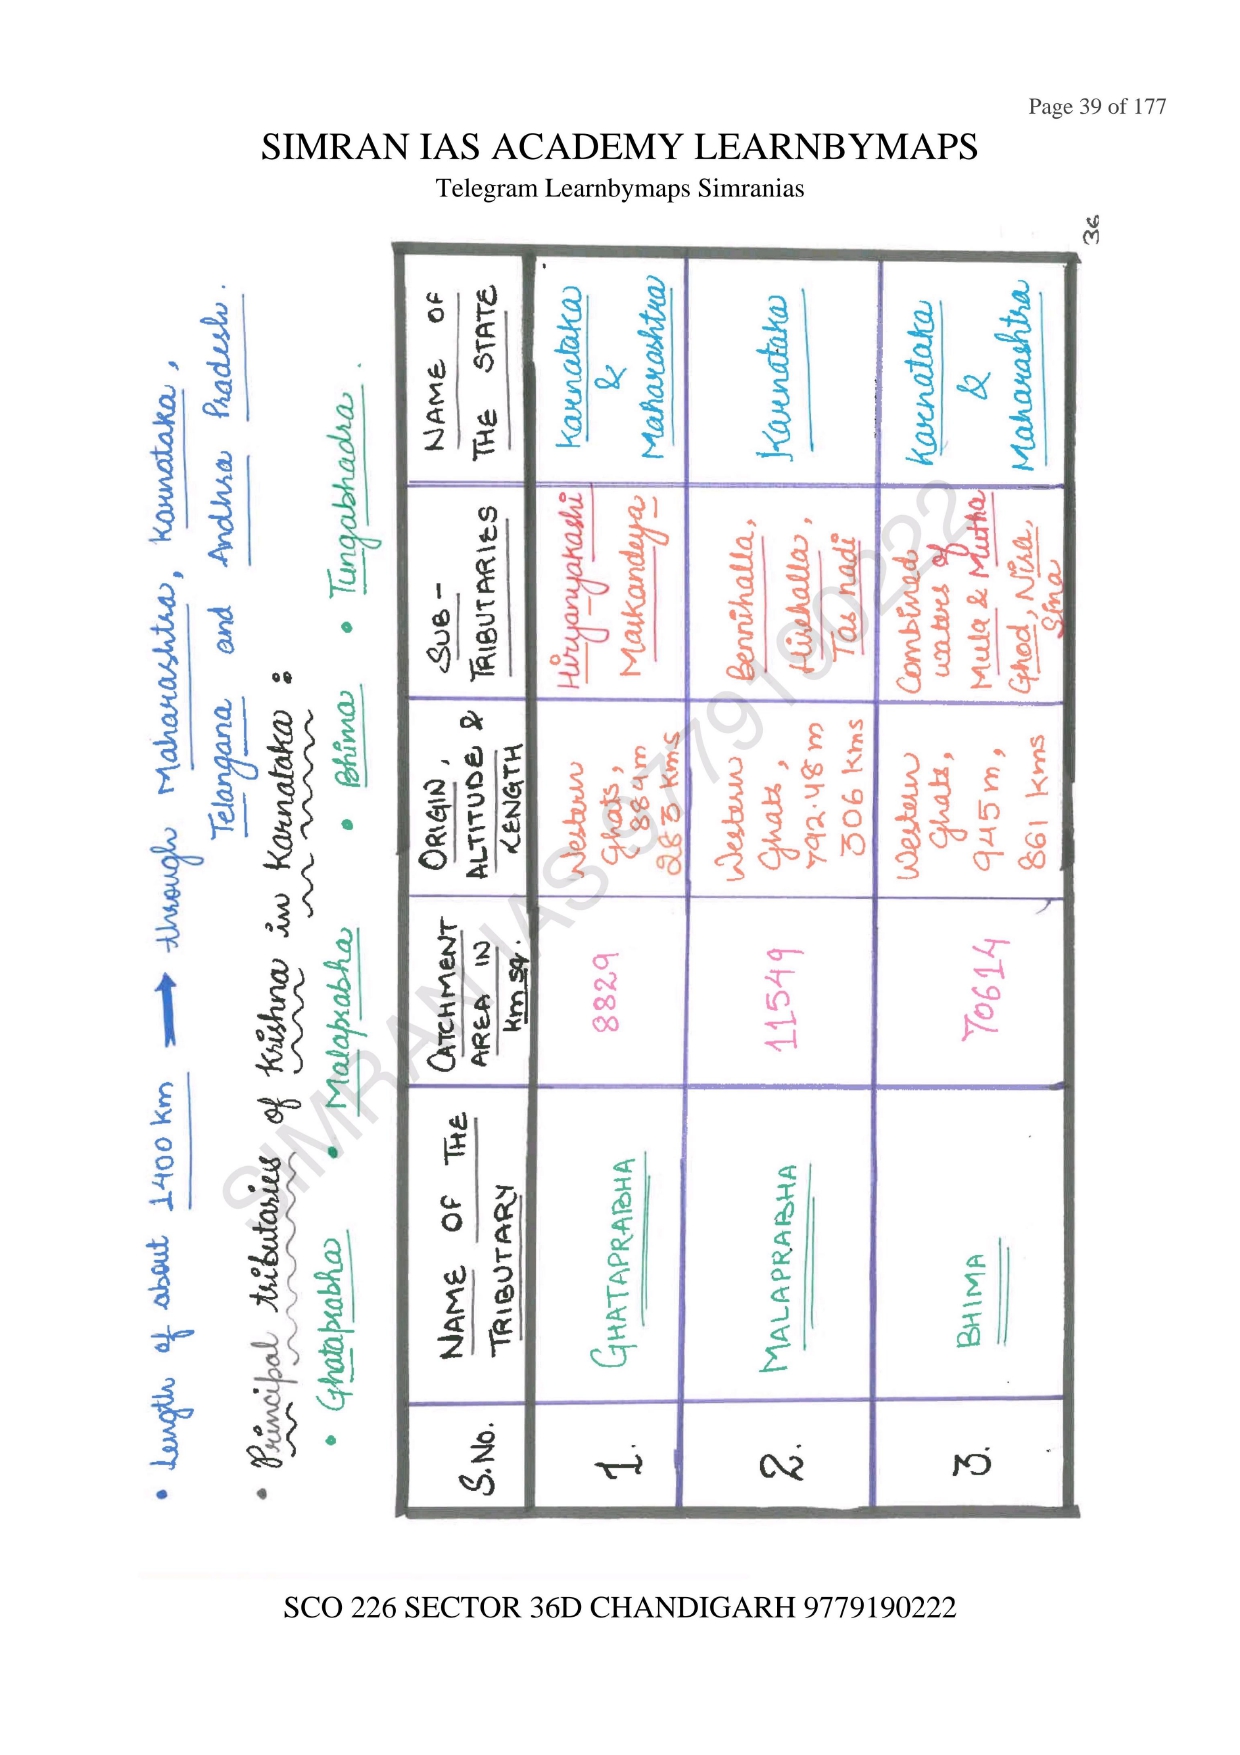 Page 39 of 177
SIMRAN IAS ACADEMY LEARNBYMAPS
Telegram Learnbymaps Simranias
36
• Length of about 1400 km → through Maharashtra, Karnataka,
Telangana and Andhra Pradesh.
• Principal tributaries of Krishna in Karnataka :
• Ghataprabha • Malaprabha • Bhima • Tungabhadra.
S.No.
NAME OF THE
TRIBUTARY
CATCHMENT
AREA IN
km sq.
ORIGIN,
ALTITUDE &
LENGTH
SUB-
TRIBUTARIES
NAME OF
THE STATE
1.
GHATAPRABHA
8829
Western
Ghats,
884 m
283 kms
Hiryanyakashi
Markandeya
Karnataka
&
Maharashtra
2.
MALAPRABHA
11549
Western
Ghats,
792.48 m
306 kms
Bennihalla,
Hirehalla,
Tas nadi
Karnataka
3.
BHIMA
70614
Western
Ghats,
945 m,
861 kms
Combined
waters of
Mula & Mutha
Ghod, Nira,
Sina
Karnataka
&
Maharashtra
SIMRAN IAS 9779190222
SCO 226 SECTOR 36D CHANDIGARH 9779190222